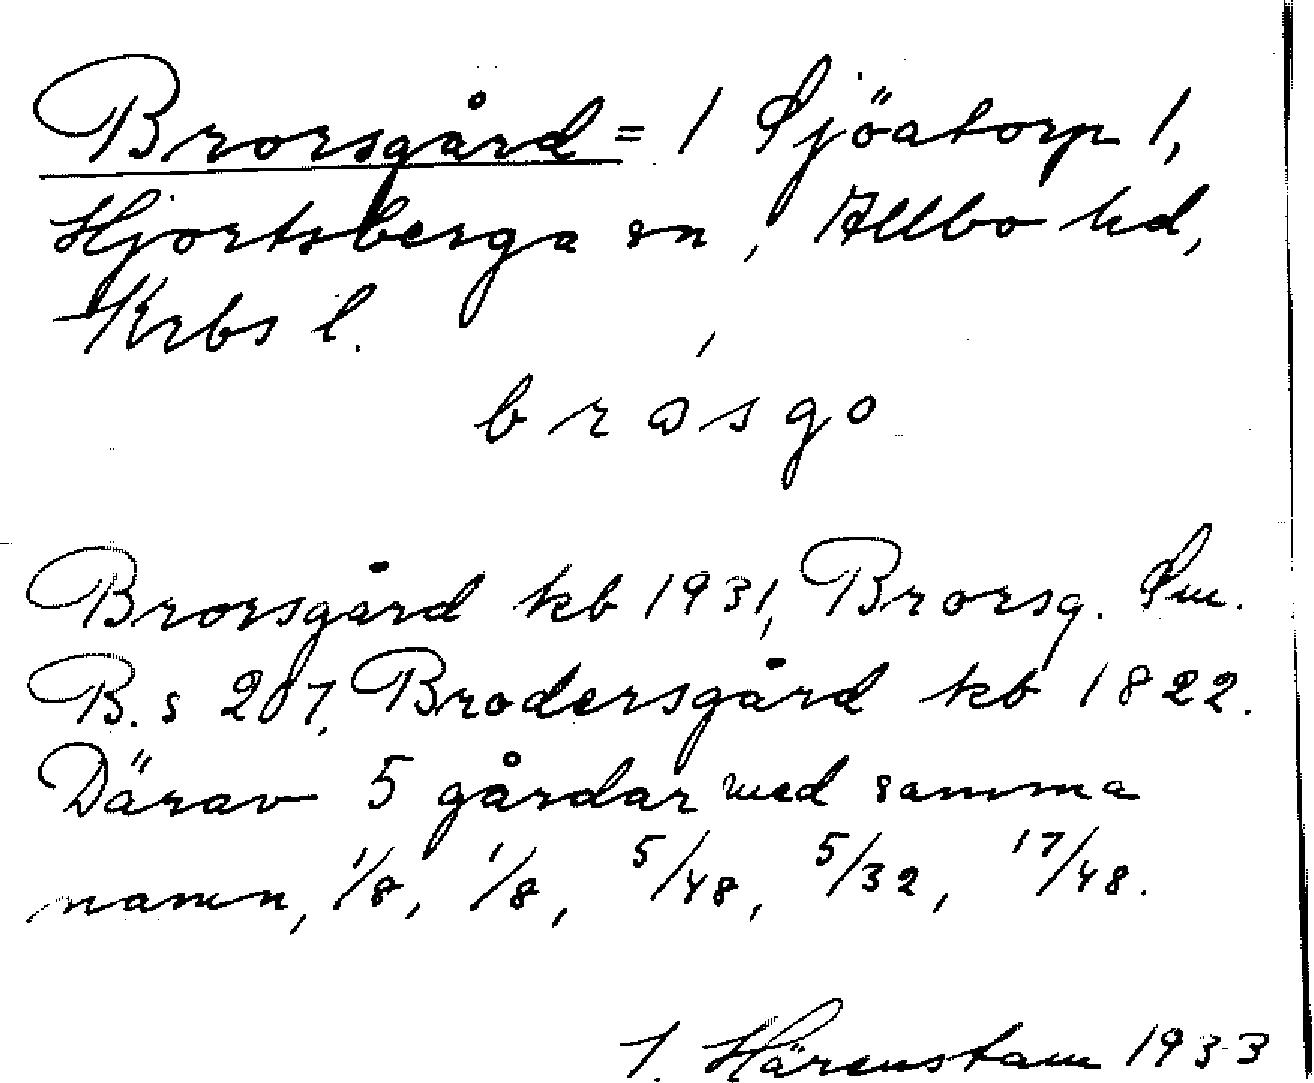 Brorsgård = 1 Sjöatorp 1,
Hjortsberga sn, Allbo hd,
Krbs l.
brɷ́sgo
Brorsgård kb 1931, Brorsg. Sm.
B. s 207, Brodersgård kb 1822.
Därav 5 gårdar med samma
namn, 1/8, 1/8, 5/48, 5/32, 17/48.
I. Härenstam 1933